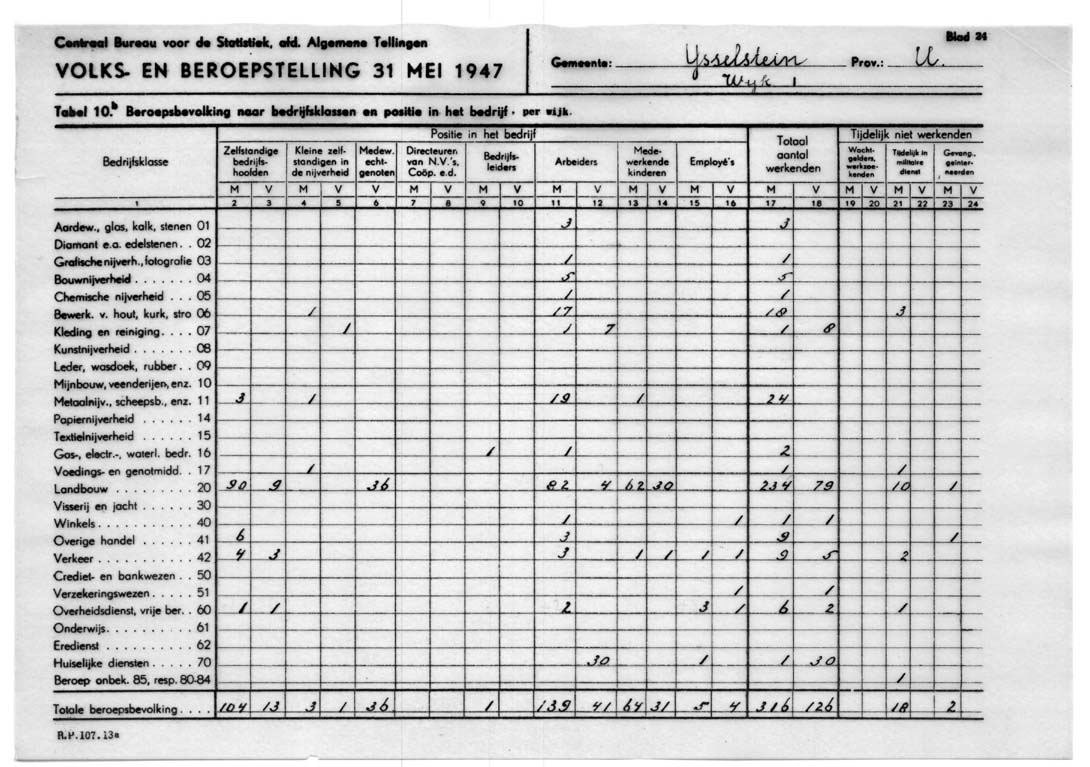 Centraal Bureau voor de Statistiek, afd. Algemene Tellingen
Blad 24
VOLKS- EN BEROEPSTELLING 31 MEI 1947
Gemeente: Ysselstein Prov.: U.
Wyk 1
Tabel 10.b Beroepsbevolking naar bedrijfsklassen en positie in het bedrijf, per wijk.
Bedrijfsklasse
Positie in het bedrijf
Totaal aantal werkenden
Tijdelijk niet werkenden
Zelfstandige bedrijfs-hoofden
Kleine zelf-standigen in de nijverheid
Medew. echt-genoten
Directeuren van N.V.'s, Coöp. e.d.
Bedrijfs-leiders
Arbeiders
Mede-werkende kinderen
Employé's
Wacht-gelders, werkzoe-kenden
Tijdelijk in militaire dienst
Gevang., geïnter-neerden
M V M V V M V M V M V M V M V M V M V M V M V
1 2 3 4 5 6 7 8 9 10 11 12 13 14 15 16 17 18 19 20 21 22 23 24
Aardew., glas, kalk, stenen 01 3 3
Diamant e.a. edelstenen. . 02
Grafische nijverh., fotografie 03 1 1
Bouwnijverheid . . . . . . 04 5 5
Chemische nijverheid . . . 05 1 1
Bewerk. v. hout, kurk, stro 06 1 17 18 3
Kleding en reiniging. . . . 07 1 1 7 1 8
Kunstnijverheid . . . . . . . 08
Leder, wasdoek, rubber. . 09
Mijnbouw, veenderijen, enz. 10
Metaalnijv., scheepsb., enz. 11 3 1 19 1 24
Papiernijverheid . . . . . . 14
Textielnijverheid . . . . . . 15
Gas-, electr.-, waterl. bedr. 16 1 1 2
Voedings- en genotmidd. . 17 1 1 1
Landbouw . . . . . . . . . 20 90 9 36 82 4 62 30 234 79 10 1
Visserij en jacht . . . . . . 30
Winkels . . . . . . . . . . . 40 1 1 1 1
Overige handel . . . . . . 41 6 3 9 1
Verkeer . . . . . . . . . . . 42 4 3 3 1 1 1 1 9 5 2
Crediet- en bankwezen . . 50
Verzekeringswezen. . . . . 51 1 1
Overheidsdienst, vrije ber. . 60 1 1 2 3 1 6 2 1
Onderwijs. . . . . . . . . . 61
Eredienst . . . . . . . . . . 62
Huiselijke diensten . . . . . 70 30 1 1 30
Beroep onbek. 85, resp. 80-84 1
Totale beroepsbevolking . . . . 104 13 3 1 36 1 139 41 64 31 5 4 316 126 18 2
R.P.107.13a